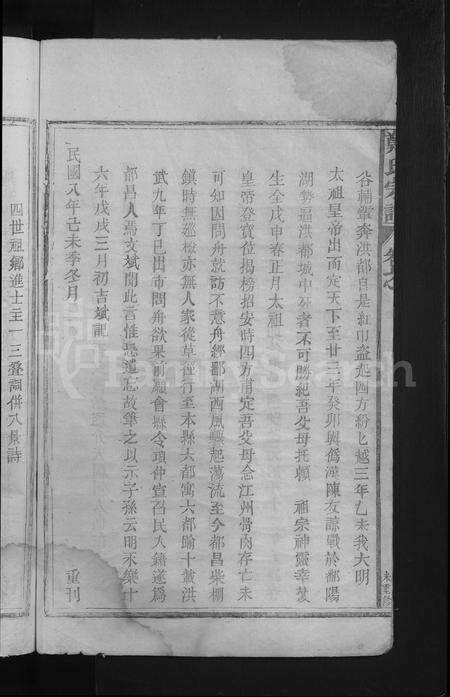 谷輔輦奔洪都自是紅巾盗起四方紛乀越三年乙未我大明
太祖皇帝出而定天下至廿三年癸卯興僞漢陳友諒戰於鄱陽
湖勢逼洪都城中死者不可勝紀吾父母托賴 祖宗神靈幸獲
生全戊申春正月太祖
皇帝登寶位揭榜招安時四方甫定吾父母念江州骨肉存亡未
可知因問舟就訪不意舟經鄱湖西風驟起蕩流至今都昌柴棚
鎮時無廵檢亦無人家從草徑行至本縣大都寓六都踰十載洪
武九年丁巳田市問舟欲果前願會縣令項仲宣召民入籍遂爲
都昌人馮文斌聞此言惟恐遺忘故筆之以示子孫云明永樂十
六年戊戌三月初吉斌記
民國八年己未季冬月 重刊
鄭氏宗譜 卷之
未重修
四世祖鄉進士主一三登詞併八景詩